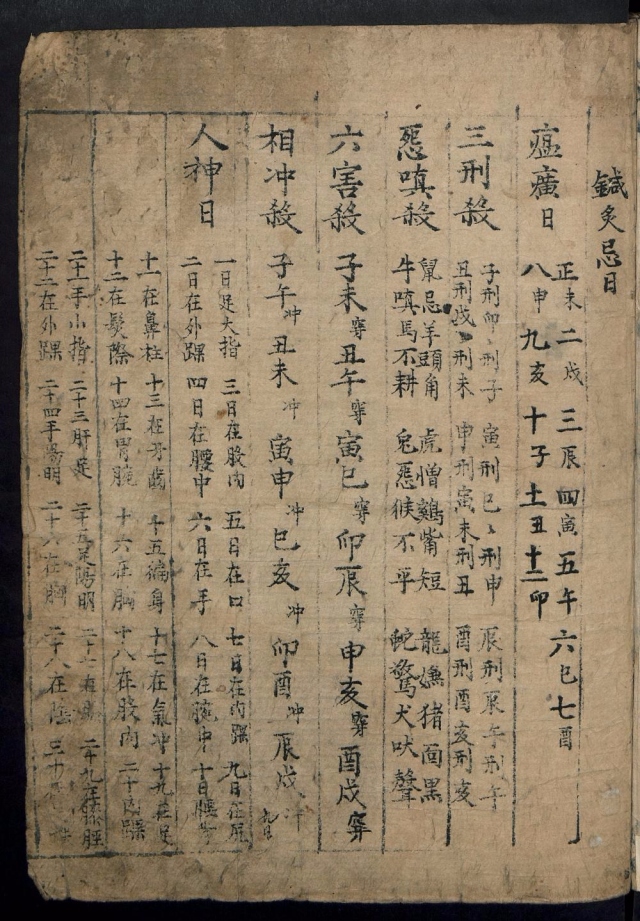 鍼灸忌日
瘟㾮日
正未 二戌 三辰 四寅 五午 六巳 七酉
八申 九亥 十子 十一丑 十二卯
三刑殺
子刑卯 〻刑子 寅刑巳 〻刑申 辰刑辰 午刑午
丑刑戌 〻刑未 申刑寅 未刑丑 酉刑酉 亥刑亥
惡嗔殺
鼠忌羊頭角 虎憎鷄嘴短 龍嫌猪面黑
牛嗔馬不耕 兔惡猴不平 蛇驚犬吠聲
六害殺
子未穿 丑午穿 寅巳穿 卯辰穿 申亥穿 酉戌穿
相冲殺
子午冲 丑未冲 寅申冲 巳亥冲 卯酉冲 辰戌冲
人神日
一日足大指 三日在股内 五日在口 七日在内踝 九日在尻
二日在外踝 四日在腰中 六日在手 八日在腕中 十日腰背
十一在鼻柱 十三在牙齒 十五徧身 十七在氣冲 十九在足
十二在髮際 十四在胃脘 十六在胸 十八在股内 二十内踝
二十一手小指 二十三肝足 二十五足陽明 二十七在膝 二十九在膝脛
二十二在外踝 二十四手陽明 二十六在胸 二十八在陰 三十日